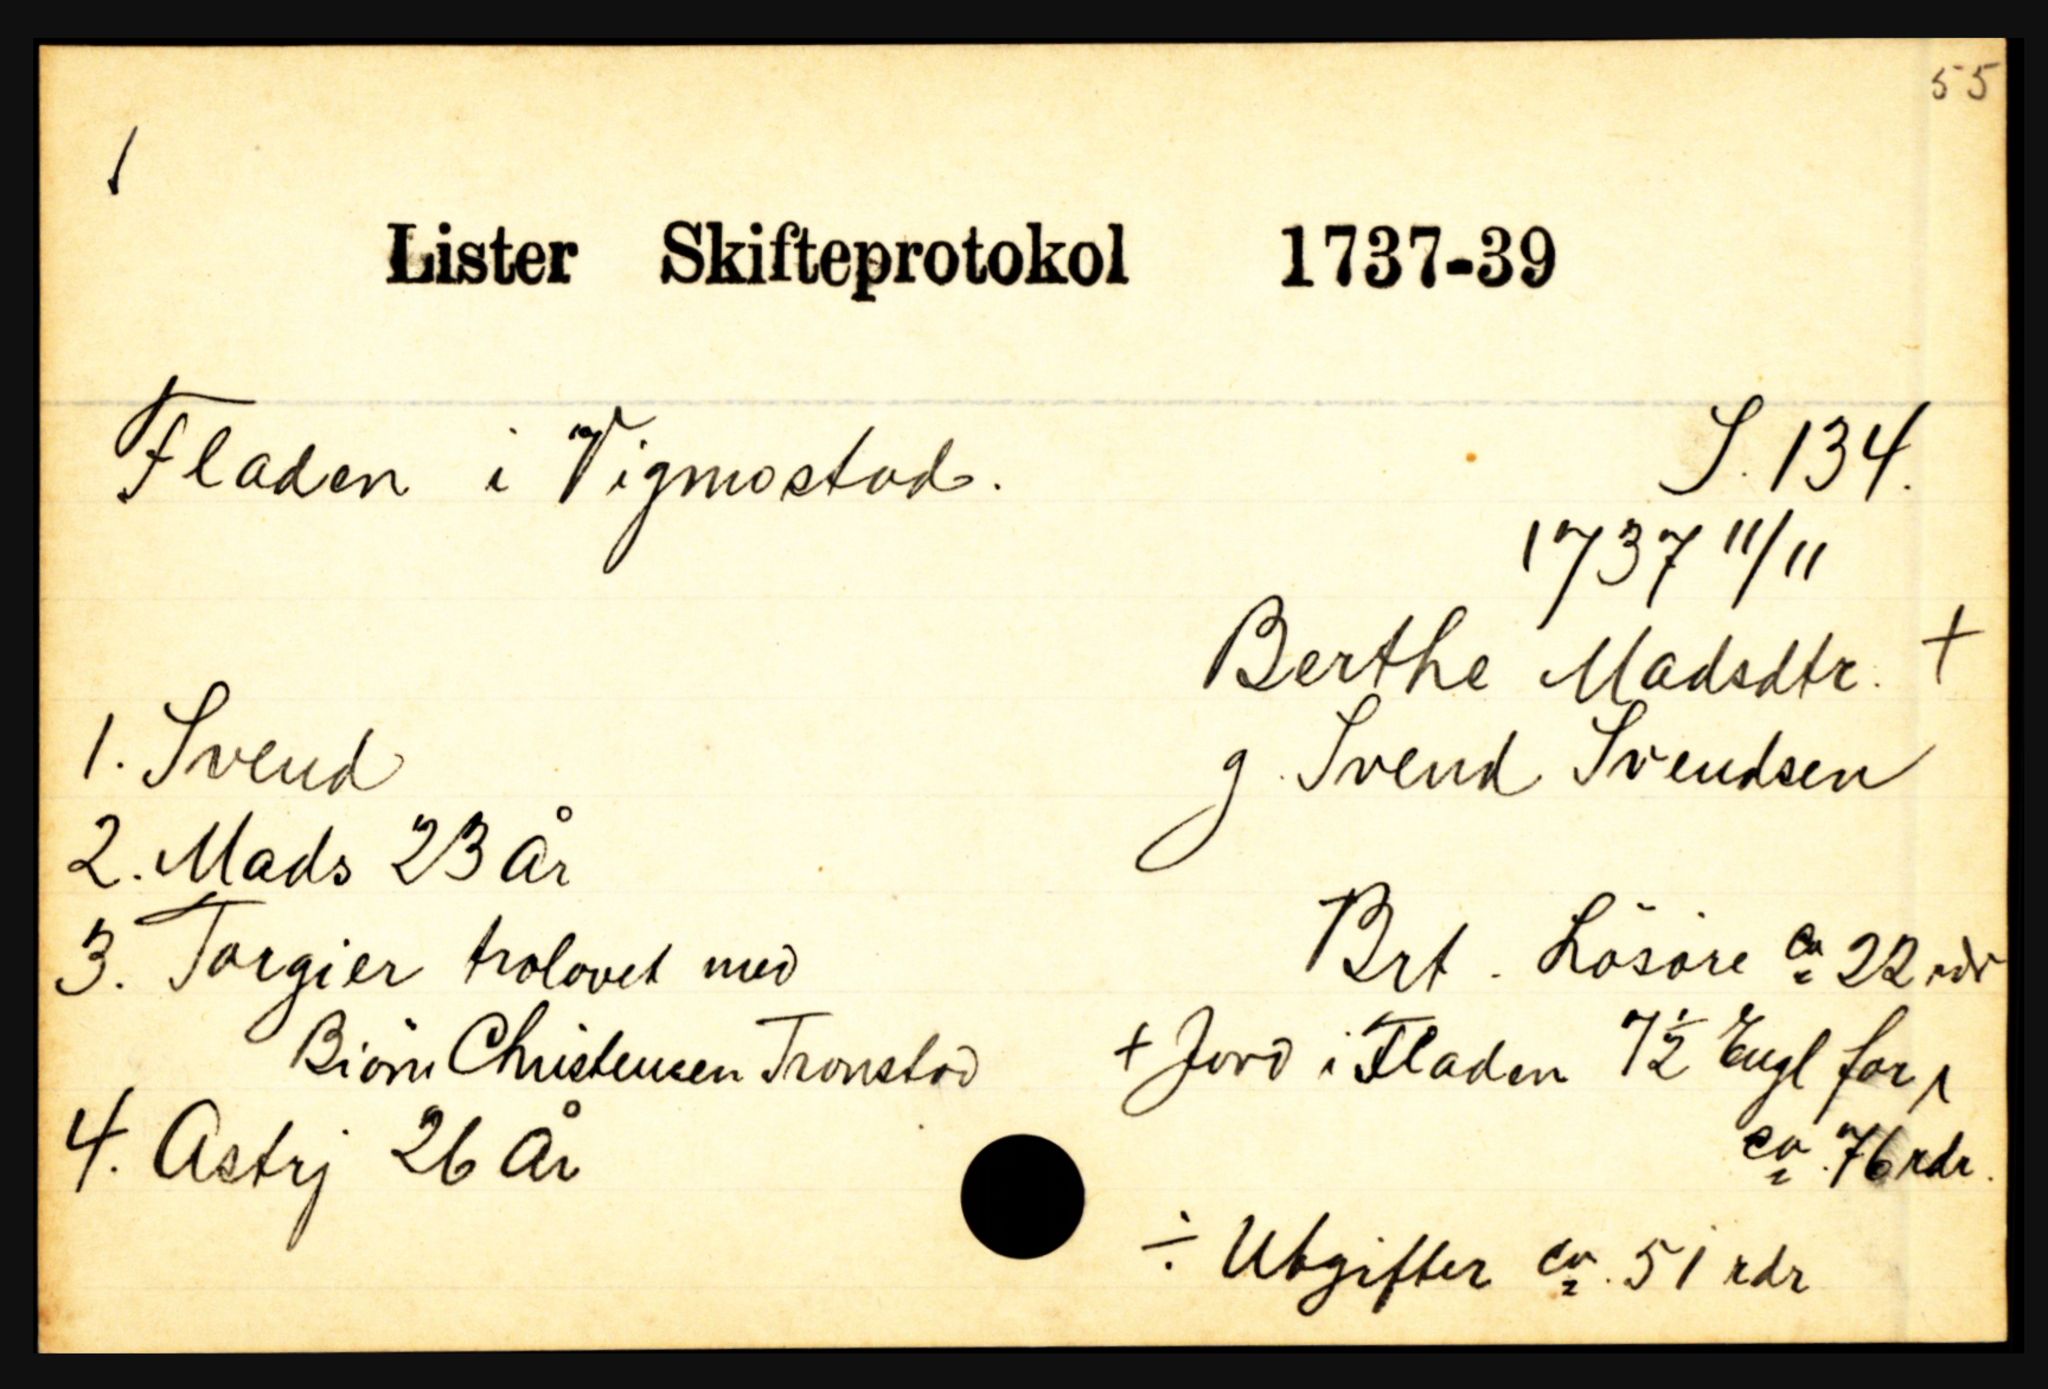 55
1
Lister Skifteprotokol 1737-39
Fladen i Vigmostad.
S. 134.
1737 11/11
Berthe Madsdtr. +
g. Svend Svendsen
1. Svend
2. Mads 23 år
3. Torgier trolovet med
Biörn Christensen Tronstad
4. Astrj 26 år
Brt. Lösöre ca 22 rdr
+ Jord i Fladen 7½ Engl for
ca. 76 rdr.
÷ Utgifter ca. 51 rdr